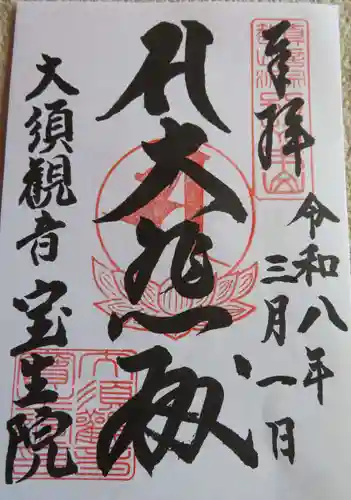 奉拝
令和八年
三月一日
大悲殿
大須観音 宝生院